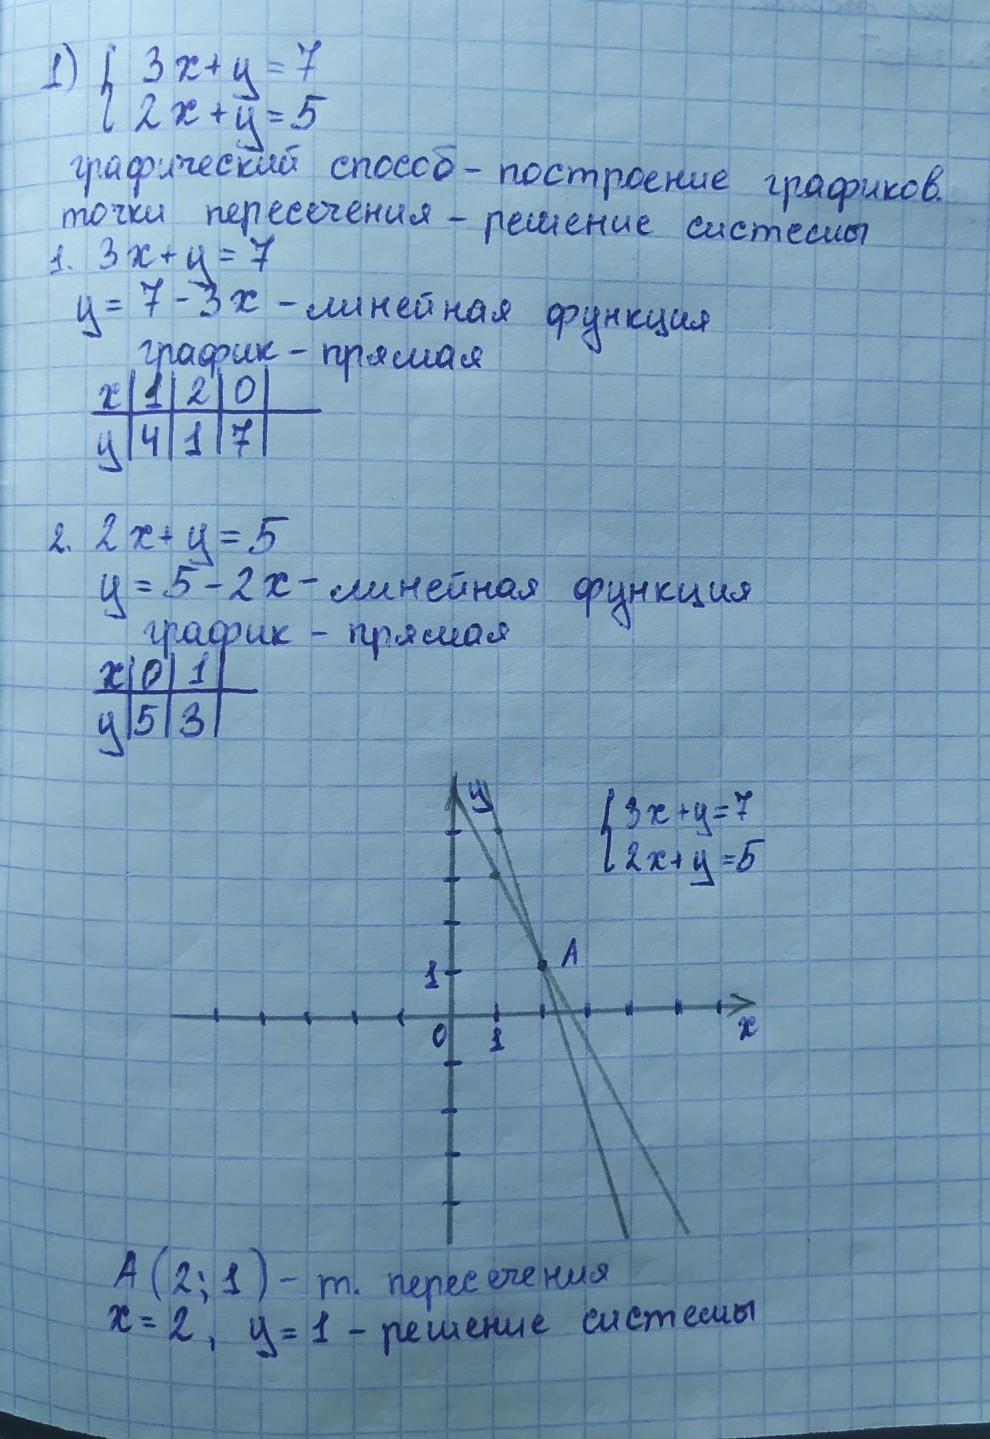 1) { 3x+y=7
2x+y=5
графический способ - построение графиков.
точки пересечения - решение системы
1. 3x+y=7
y=7-3x - линейная функция
график - прямая
x|1|2|0|
y|4|1|7|
2. 2x+y=5
y=5-2x - линейная функция
график - прямая
x|0|1|
y|5|3|
y
{ 3x+y=7
2x+y=5
A
1
0 1 x
A(2;1) - т. пересечения
x=2, y=1 - решение системы